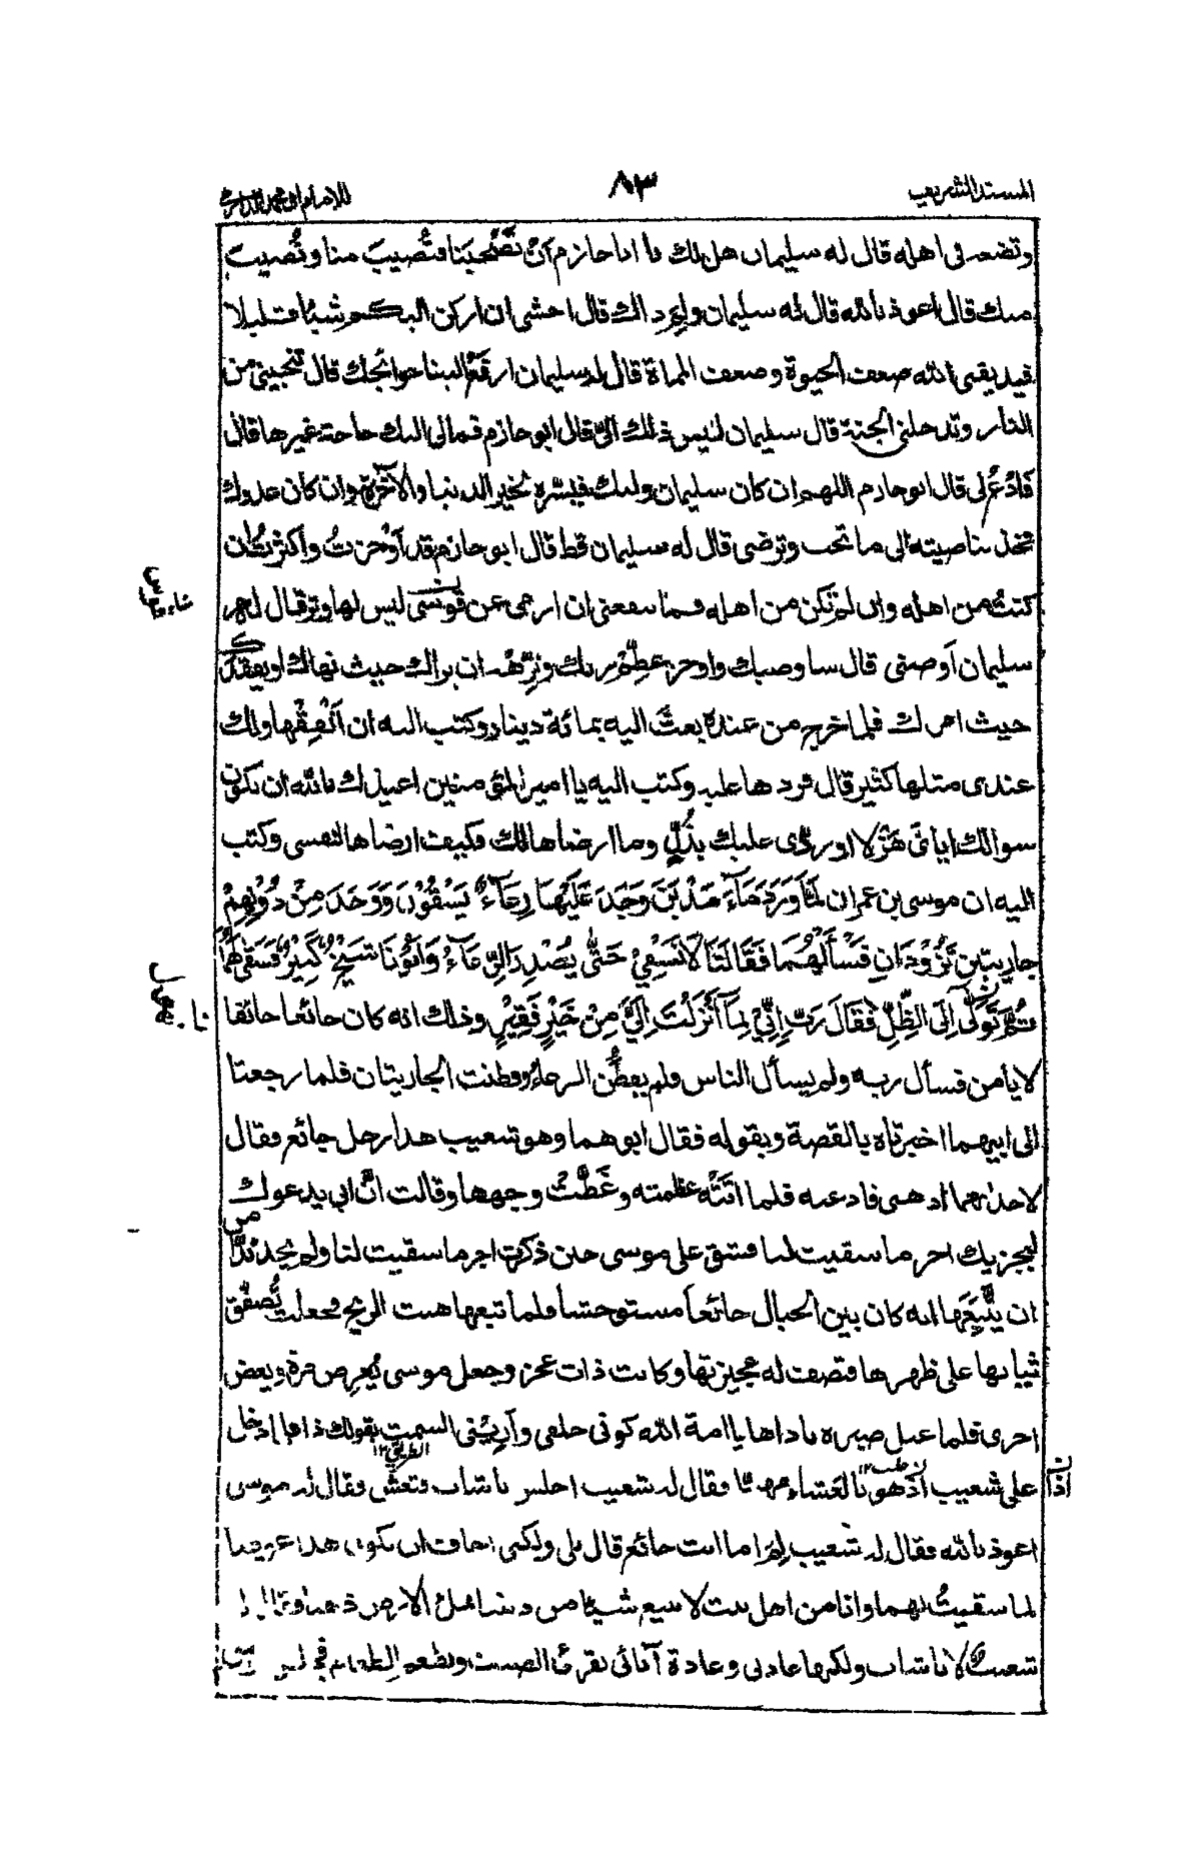 المسند الشريف ٨٣ للامام ابی محمد الدارمی
وتضعه فى اهله قال له سليمان هل لك يا ابا حازم اَنْ تَصْحَبَنا فتُصيبَ منا ونُصيبَ
منك قال اعوذ بالله قال له سليمان ولِمَ ذاك قال اخشى ان اركن اليكم شيئا قليلا
فيذيقنى الله ضعف الحيوة وضعف المماة قال له سليمان ارفَعْ الينا حوائجك قال تنجينى من
النار وتدخلنى الجنة قال سليمان ليس ذلك الىّ قال ابو حازم فمالى اليك حاجة غيرها قال
فَادْعُ لى قال ابو حازم اللهم ان كان سليمان وليك فيسّره لخير الدنيا والآخرة وان كان عدوك
فخذ بناصيته الى ما تحب وترضى قال له سليمان قط قال ابو حازم قد اَوْجزتُ واكثرتُ ان
كنتُ من اهله وان لم تكن من اهله فما ينفعنى ان ارمى عن قوس ليس لها وتر قال له
سليمان اَوصنى قال ساوصيك واوجز عظِّمْ ربك ونزِّهْه ان يراك حيث نهاك او يفقدك
حيث امرك فلما خرج من عنده بعثَ اليه بمائة دينار وكتب اليه ان اَنْفِقْها ولك
عندى مثلها كثير قال فردها عليه وكتب اليه يا امير المؤمنين اعيذك بالله ان يكون
سوالك اياى هَزْلا او ردّى عليك بذُلٍّ وما ارضاها لك فكيف ارضاها لنفسى وكتب
اليه ان موسى بن عمران لَمَّا وَرَدَ مَآءَ مَدْيَنَ وَجَدَ عَلَيْهَا رِعَآءً يَسْقُوْنَ وَوَجَدَ مِنْ دُوْنِهِمْ
جاريتين تَذُوْدَانِ فَسَأَلَهُمَا فَقَالَتَا لَا نَسْقِيْ حَتّٰى يُصْدِرَ الرِّعَآءُ وَاَبُوْنَا شَيْخٌ كَبِيْرٌ فَسَقٰى لَهُمَا
ثُمَّ تَوَلّٰى اِلَى الظِّلِّ فَقَالَ رَبِّ اِنِّيْ لِمَآ اَنْزَلْتَ اِلَيَّ مِنْ خَيْرٍ فَقِيْرٌ وذلك انه كان جائعا خائفا
لا يأمن فسأل ربه ولم يسأل الناس فلم يفطُن الرعاءُ وفطنت الجاريتان فلما رجعتا
الى ابيهما اخبرتاه بالقصة وبقوله فقال ابوهما وهو شعيب هذا رجل جائع فقال
لاحداهما اذهبى فادعيه فلما اتَتْه عظمته وغَطَّتْ وجهها وقالت اِنَّ ابى يدعوك
ليجزيك اجر ما سقيت لنا فشق على موسى حين ذكرت اجر ما سقيت لنا ولم يجد بُدًّا من
ان يتّبعَها انه كان بين الجبال جائعا مستوحشا فلما تبعها هبت الريح فجعلت تُصفّق
ثيابها على ظهرها فتصف له عجيزتها وكانت ذات عجز وجعل موسى يُعرِض مرة ويغض
اخرى فلما عيل صبره ناداها يا امة الله كونى خلفى وأرينى السمت بقولك ذا فلما دخل
الطريق ١٢
على شعيب اذ هو بالعَشاء مهيّأ فقال له شعيب اجلس يا شاب فتعشّ فقال له موسى
اعوذ بالله فقال له شعيب لِمَ اما انت جائع قال بلى ولكنى اخاف ان يكون هذا عوضا
لما سقيتُ لهما وانا من اهل بيت لا نبيع شيئا من ديننا بملء الارض ذهبا فقال له
شعيب لا يا شاب ولكنها عادتى وعادة آبائى نقرى الضيف ونطعم الطعام فجلس